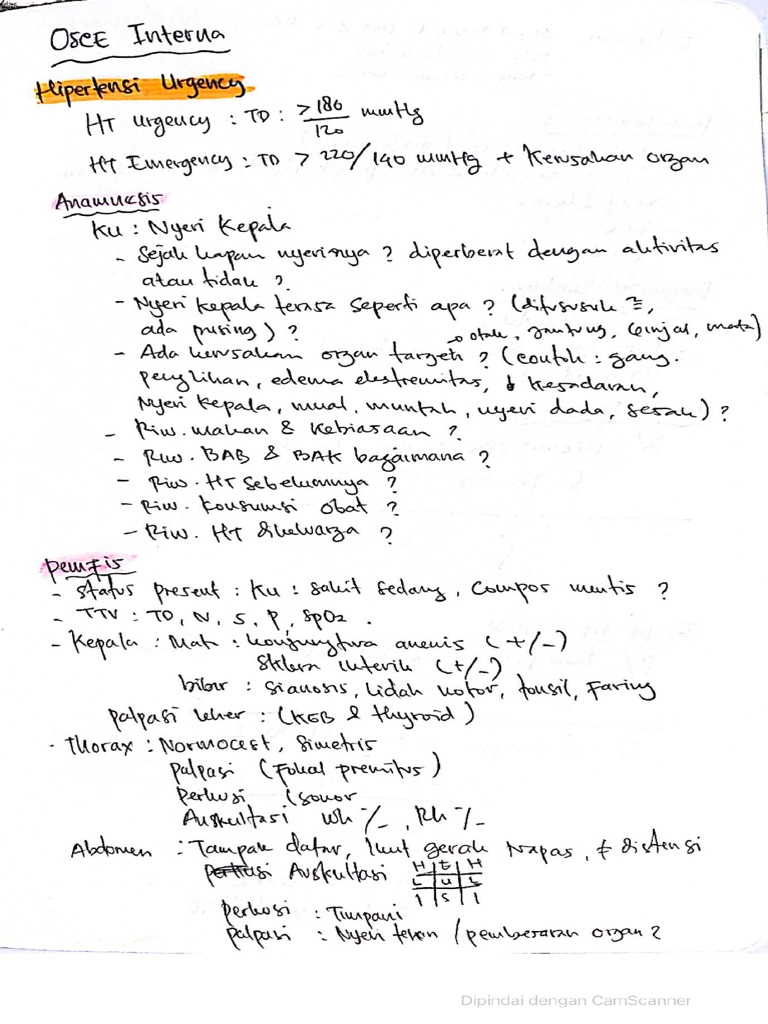 OSCE Interna
Hipertensi Urgency
HT Urgency : TD : > 180/120 mmHg
HT Emergency : TD > 220/140 mmHg + Kerusakan organ
Anamnesis
KU : Nyeri Kepala
- Sejak kapan nyerinya ? diperberat dengan aktivitas
atau tidak ?
- Nyeri kepala terasa seperti apa ? (ditususuk ²,
ada pusing) ?
→ otak, jantung, Ginjal, mata)
- Ada kerusakan organ target ? (contoh : gang.
penglihan, edema ekstremitas, ↓ Kesadaran,
Nyeri Kepala, mual, muntah, nyeri dada, sesak) ?
- Riw. makan & Kebiasaan ?
- Riw. BAB & BAK bagaimana ?
- Riw. HT Sebelumnya ?
- Riw. Konsumsi obat ?
- Riw. HT dikeluarga ?
Pemfis
- Status present : KU : Sakit Sedang, Compos mentis ?
- TTV : TD, N, S, P, SpO2.
- Kepala : Mata : konjungtiva anemis (+/-)
Sklera ikterik (+/-)
bibir : Sianosis, lidah kotor, tonsil, Faring
palpasi leher : (KGB & thyroid)
- Thorax : Normocest, Simetris
palpasi (Fokal premitus)
Perkusi (sonor
Auskultasi Wh -/-, Rh -/-
Abdomen : Tampak datar, Ikut gerak Napas, ≠ distensi
Auskultasi H | E | H
L | U | L
I | S | I
perkusi : Timpani
palpasi : Nyeri tekan / pembesaran organ ?
Dipindai dengan CamScanner